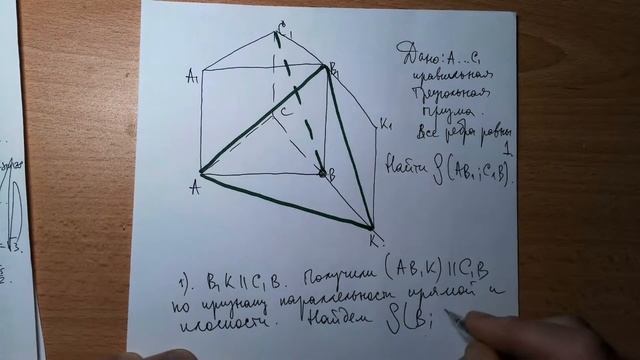 C₁
A₁
B₁
C
K₁
A
B
K
Дано: A...C₁
правильная
треугольная
призма.
Все рёбра равны
1
Найти ρ(AB₁; C₁B).
1). B₁K ∥ C₁B. Получили (AB₁K) ∥ C₁B
по признаку параллельности прямой и
плоскости. Найдём ρ(B;